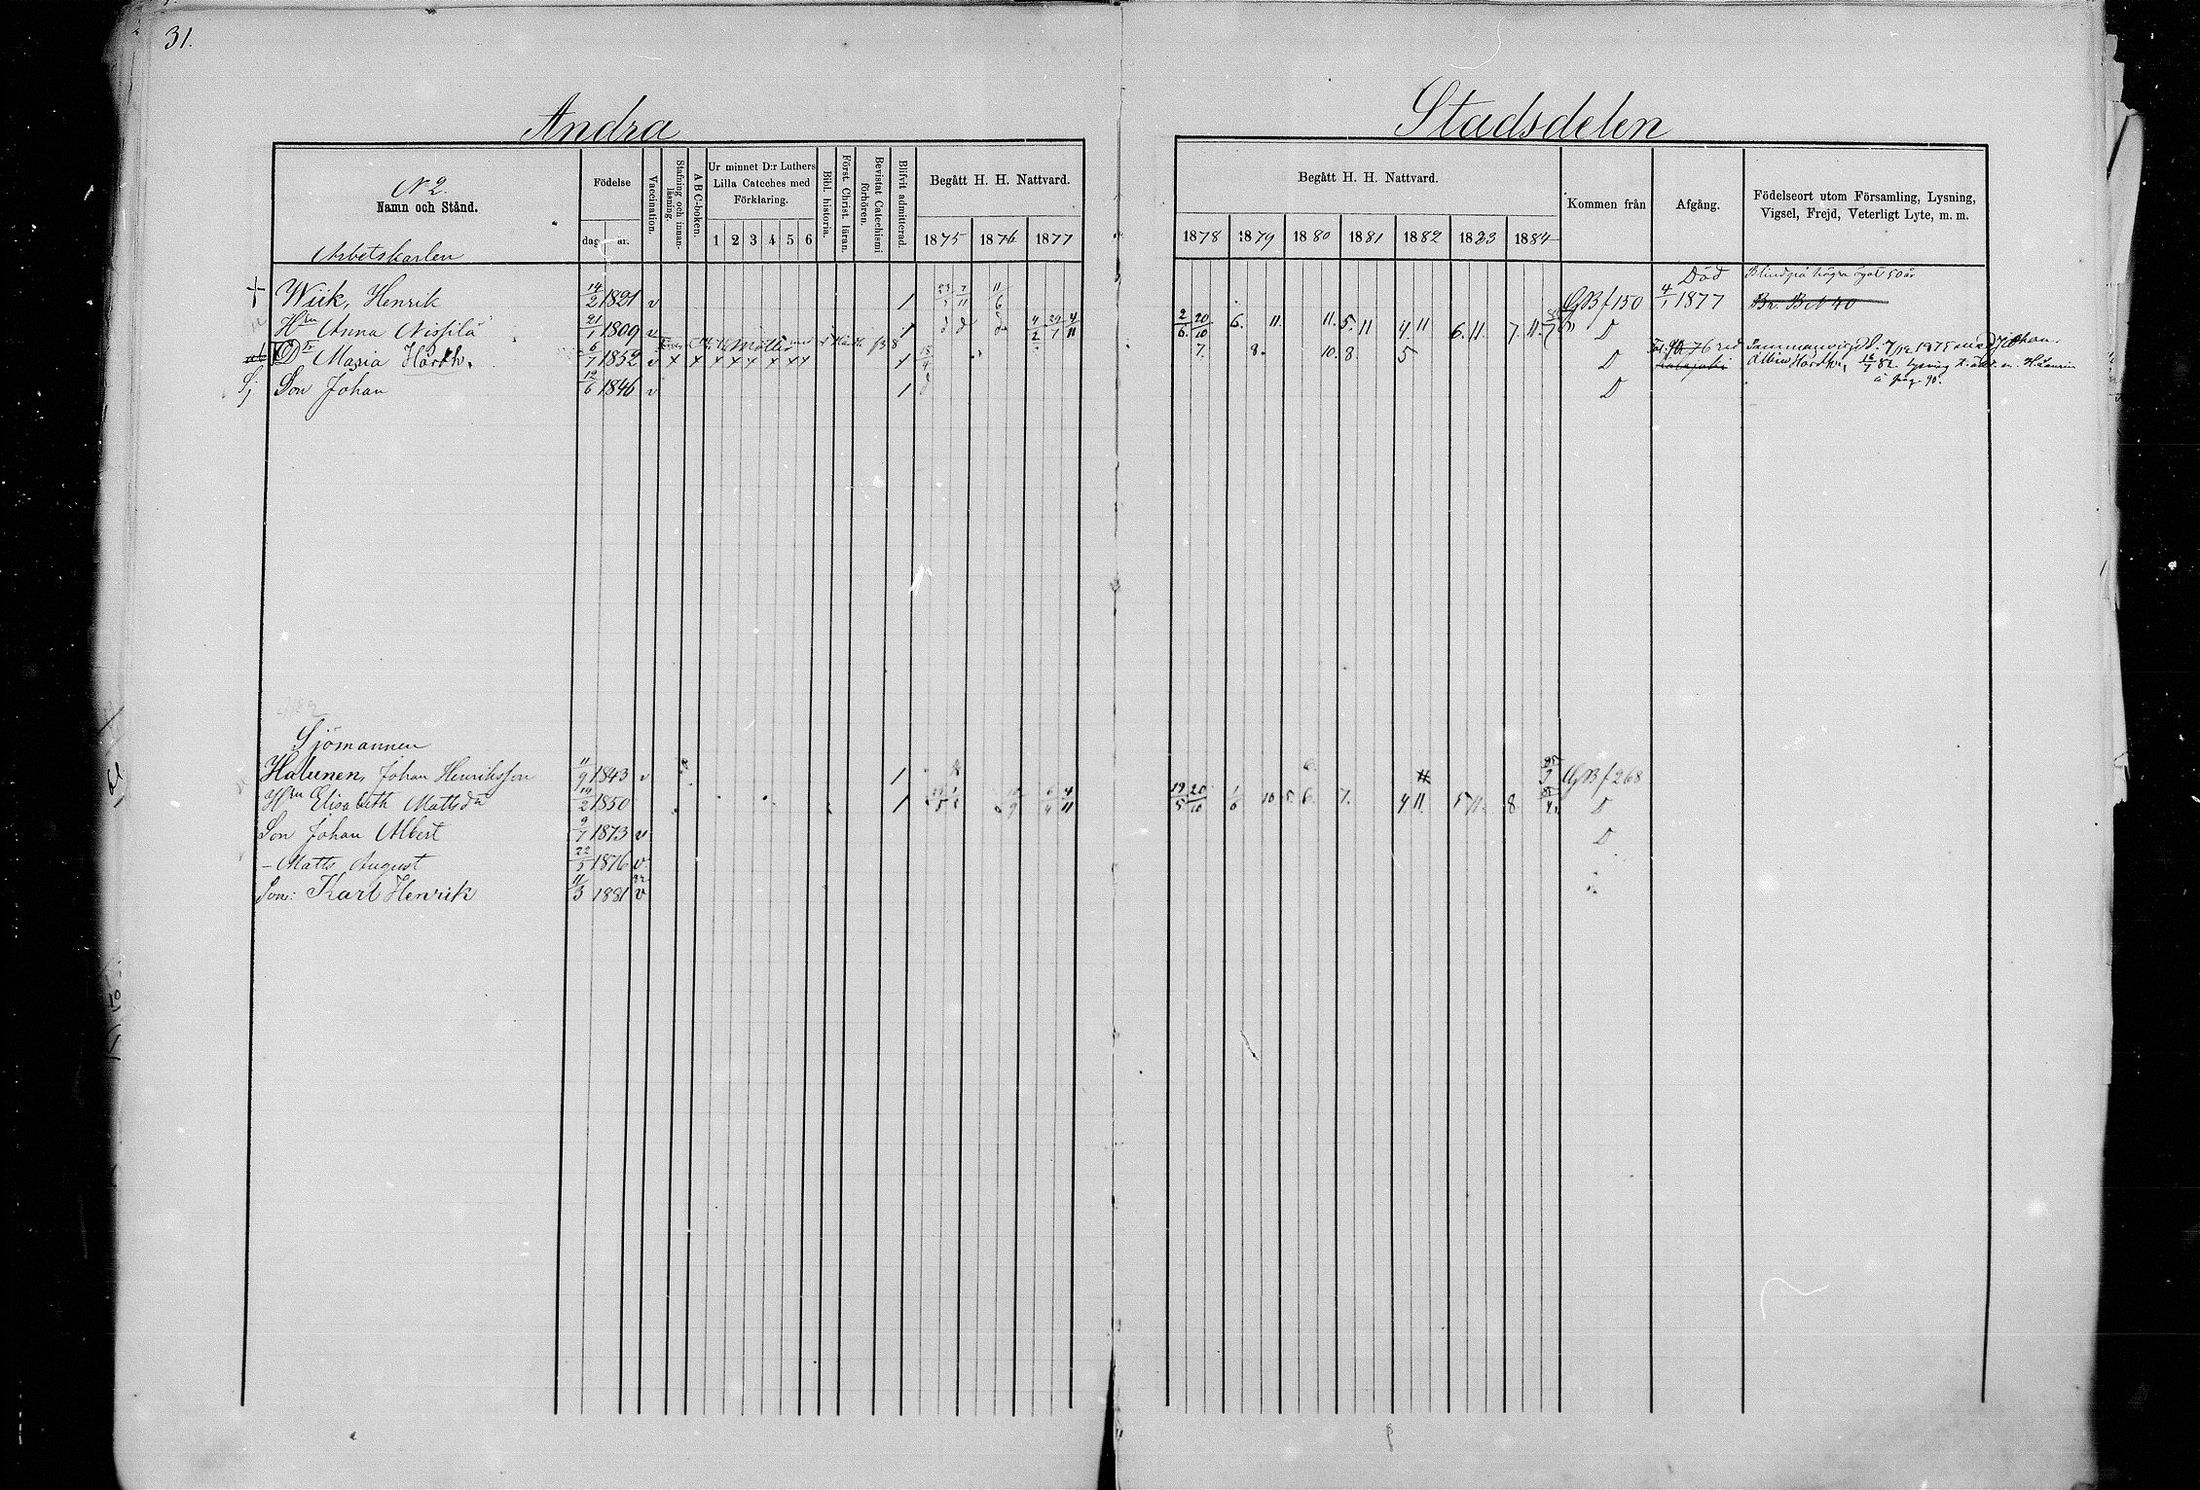 31.
Andra Stadsdelen
N 2.
Namn och Stånd.
Födelse
dag år.
Vaccination.
Stafning och innan-läsning.
A B C-boken.
Ur minnet D:r Luthers
Lilla Cateches med
Förklaring.
1 2 3 4 5 6
Bibl. historia.
Först. Christ. läran.
Bevistat Catechismi förhören.
Blifvit admitterad.
Begått H. H. Nattvard.
1875 1876 1877
Begått H. H. Nattvard.
1878 1879 1880 1881 1882 1883 1884
Kommen från
Afgång.
Födelseort utom Församling, Lysning,
Vigsel, Frejd, Veterligt Lyte, m. m.
Arbetskarlen
† Wiik, Henrik 14/2 1821 v 1 11/6 GBf 150 Död 4/1 1877 Blind på högra ögat 50 år
Hru Anna Nissilä 21/1 1809 v 1 2/6 20/10 6. 11. 11. 5. 11 4. 11 6. 11. 7. 11. D
Dr Maria Hårdh. 6/7 1852 v x x x x x x x x 1 7. 8. 10. 8. 5 D
Sj Son Johan 12/6 1846 v 1 D
Sjömannen
Halunen, Johan Henriksson 11/9 1843 v 1 GBf 268
Hru Elisabeth Mattsdr 19/2 1850 1 4/11 19/5 20/10 1/6 10 5. 6. 7. 4 11. 5 11. 8 D
Son Johan Albert 9/7 1873 v D
- Matts August 22/5 1876 v.
Son: Karl Henrik 11/3 1881 v